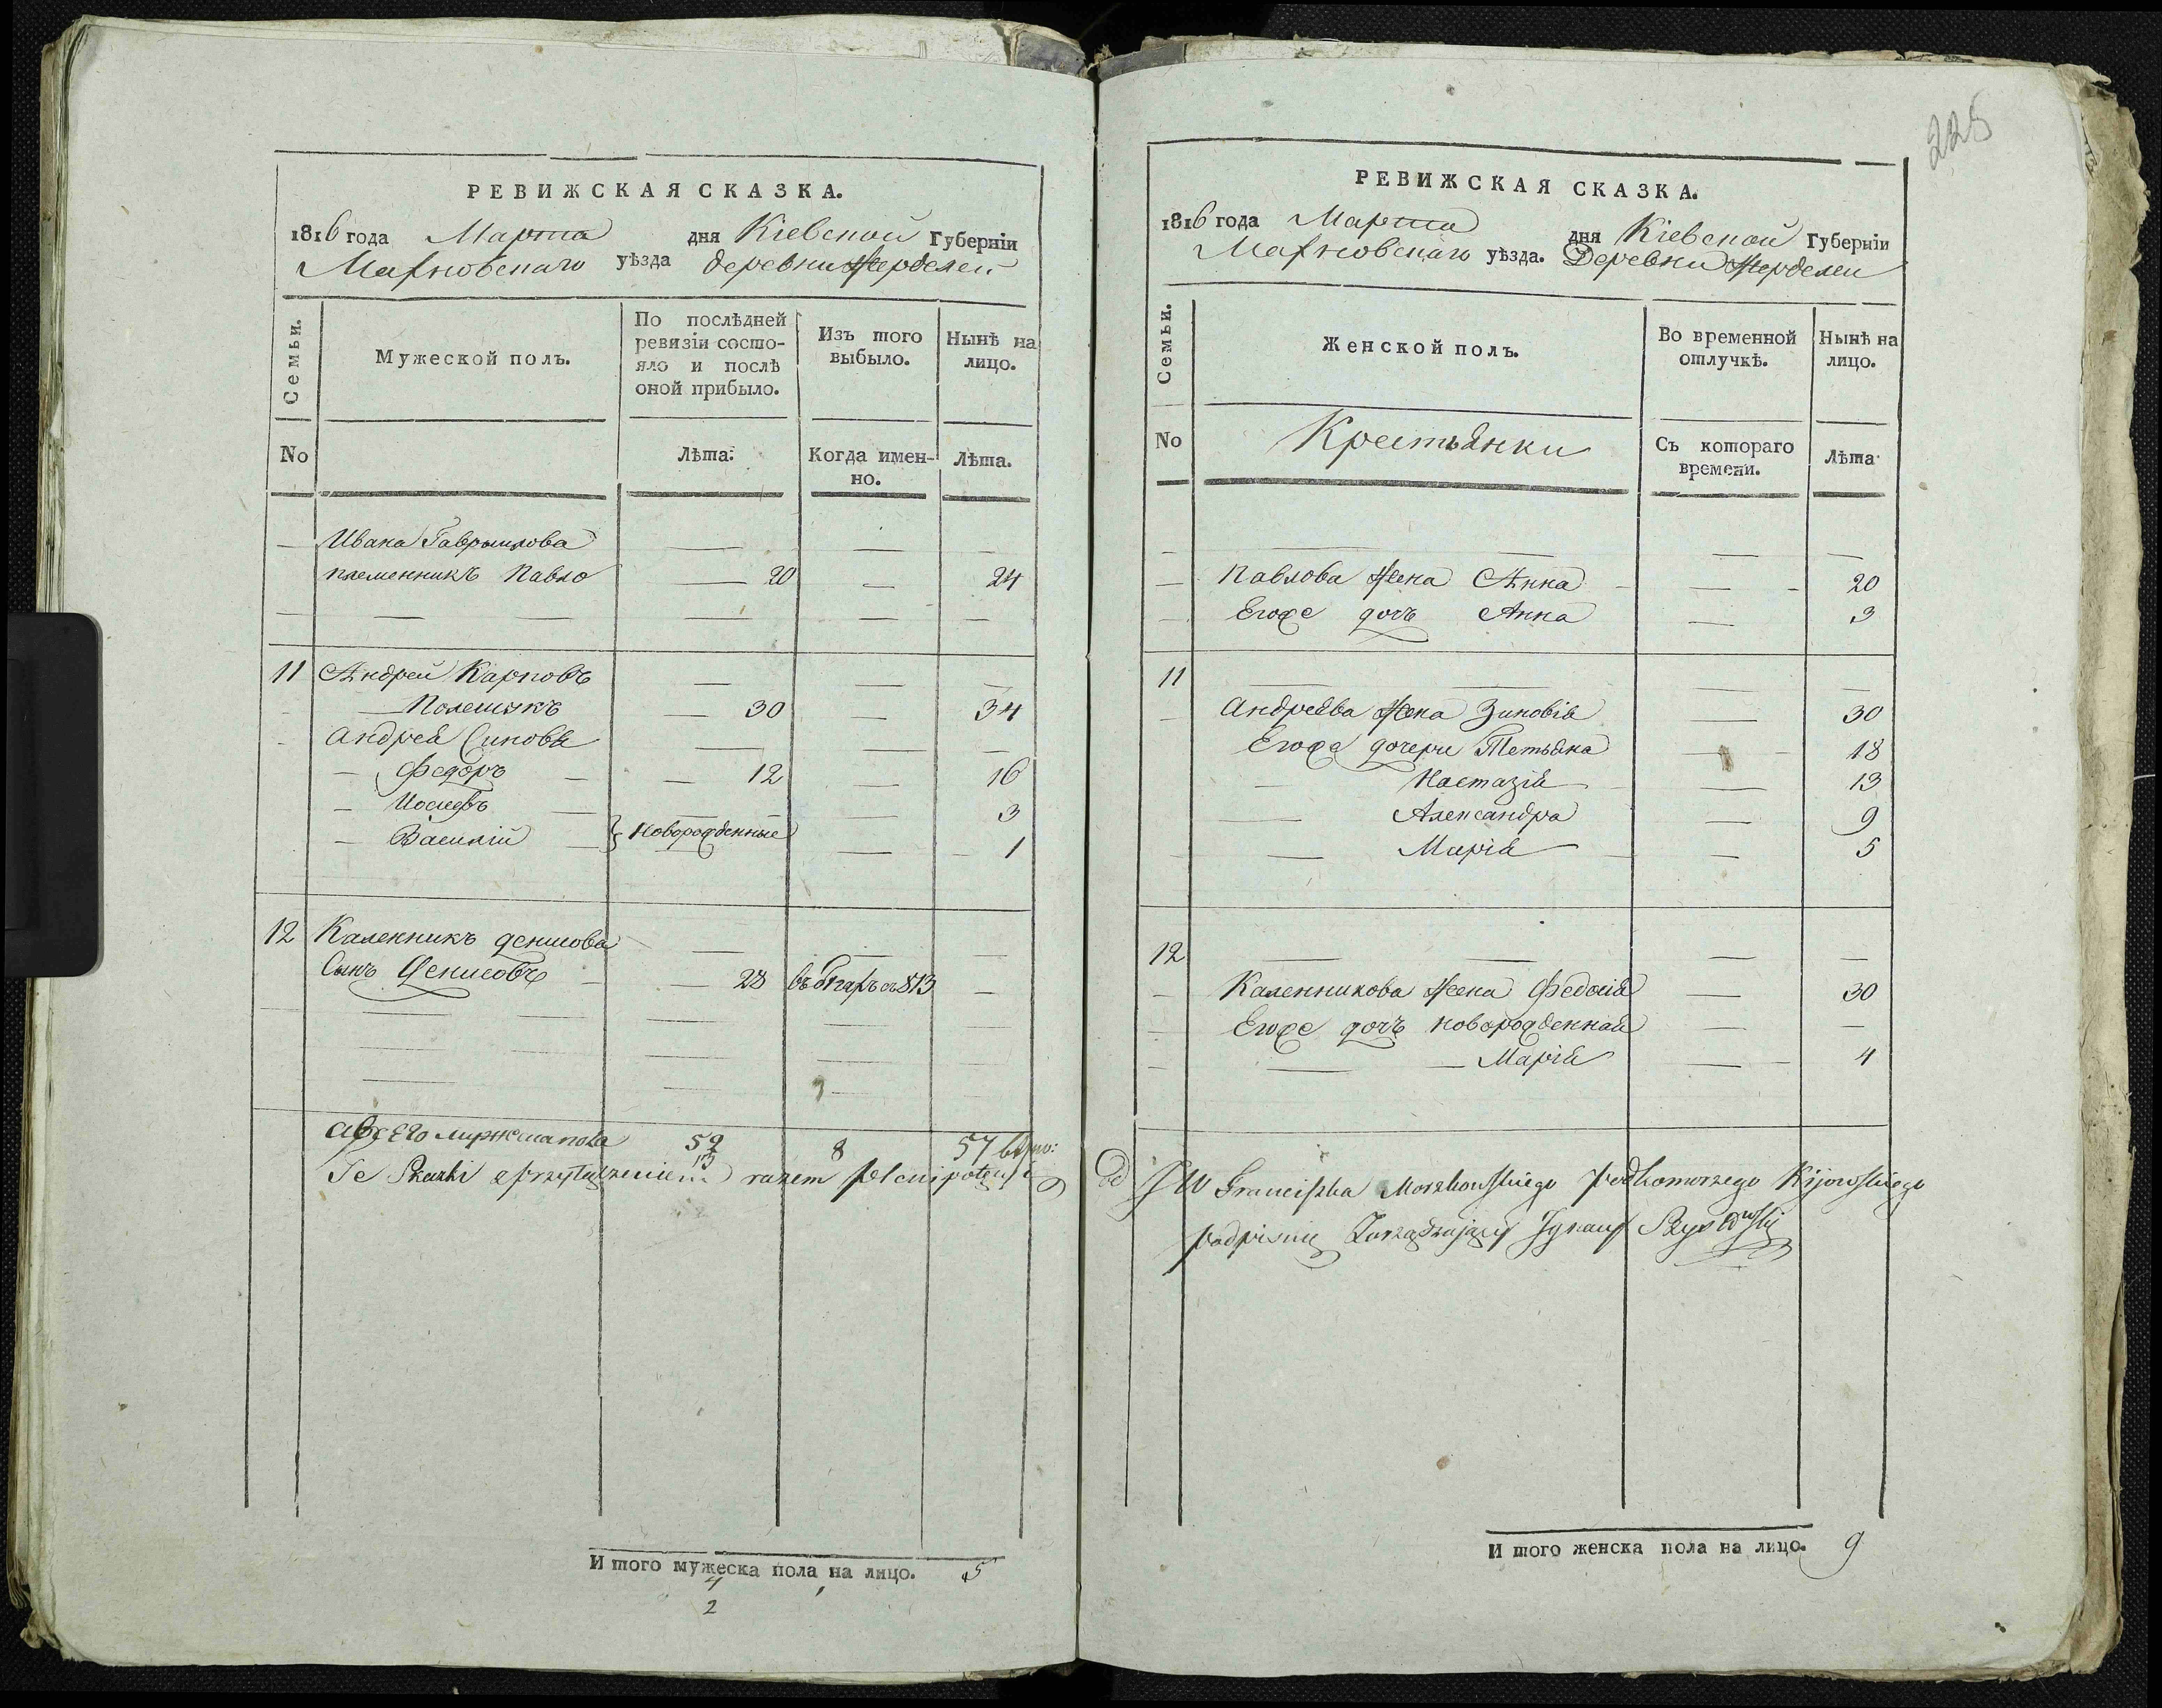 РЕВИЖСКАЯ СКАЗКА.
1816 года Марта дня Кіевской Губерніи
Махновскаго уѣзда деревни Жерделей
Семьи.
Мужеской полъ.
По послѣдней ревизіи состояло и послѣ оной прибыло.
Изъ того выбыло.
Нынѣ на лицо.
No
Лѣта.
Когда именно.
Лѣта.
— Ивана Гаврылова — — —
племенникъ Павло — 20 — 24
— — — — — —
11 Андрей Карповъ — — —
— Полещукъ — 30 — 34
Андрея Сыновья — — —
— Федоръ — — 12 — 16
— Иосифъ — — — 3
— Василій — } Новорожденные — — 1
12 Каленникъ Денисова — — —
Сынъ Денисовъ — — 28 въ 813 —
59 8 57
13
Te Skazki z przyłączeniem razem plenipotent
Итого мужеска пола на лицо. 5
4
2
225
РЕВИЖСКАЯ СКАЗКА.
1816 года Марта дня Кіевской Губерніи
Махновскаго уѣзда. Деревни Жерделеи
Семьи.
Женской полъ.
Во временной отлучкѣ.
Нынѣ на лицо.
No
Крестьянки
Съ котораго времени.
Лѣта
— — — — —
— Павлова Жена Анна — — 20
— Егоже дочь Анна — 3
11 — — — —
— Андреева Жена Зиновія — 30
Егоже дочери Тетьяна — 18
— Настазія — — 13
— Александра — 9
— Марія — — 5
12 — — — —
— Каленникова Жена Федосія — 30
— Егоже дочь новорожденная — —
— — — Марія — 4
od JW Franciszka Morzkowskiego Podkomorzego Kijowskiego
podpisuię Zarządzający Ignacy
Итого женска пола на лицо. 9